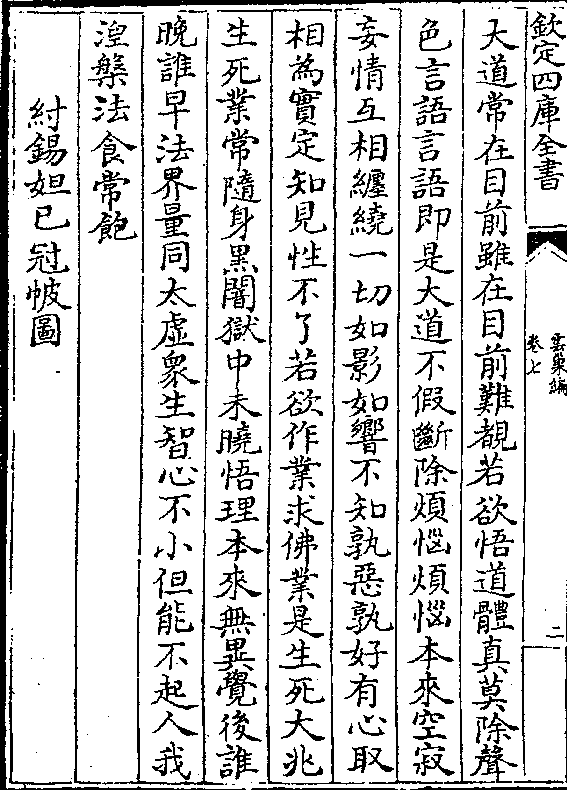 欽定四庫全書
雲巢編
卷七
二
大道常在目前雖在目前難覩若欲悟道體真莫除聲
色言語言語即是大道不假斷除煩惱煩惱本來空寂
妄情互相纒繞一切如影如響不知孰惡孰好有心取
相為實定知見性不了若欲作業求佛業是生死大兆
生死業常隨身黒闇獄中未曉悟理本來無異覺後誰
晚誰早法界量同太虛衆生智心不小但能不起人我
湼槃法食常飽
紂錫妲已冠帔圖